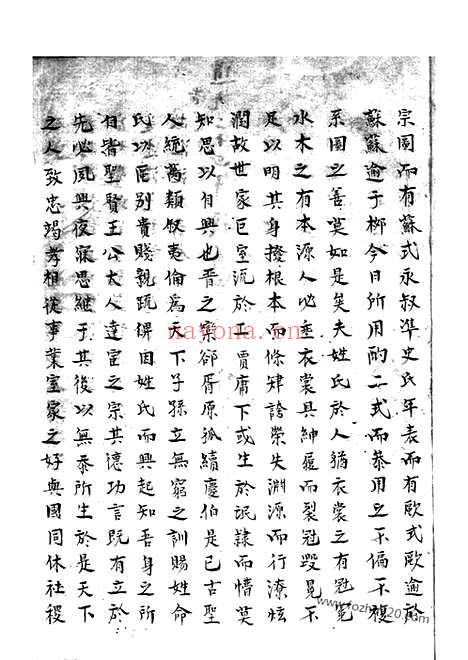 宗圖而有蘇式永叔準史氏年表而有歐式歐逾於
蘇蘇逾于柳今日所用酌二式而叅用之不偏不複
系圖之善莫如是矣夫姓氏於人猶衣裳之有冠冕
水木之有本源人必垂衣裳具紳履而裂冠毀冕不
足以明其身撥根本而條肄誇榮失淵源而行潦炫
潤故世家巨室流於賈庸下或生於氓隸而懵莫
知思以自興也晋之欒郤胥原狐續慶伯是已古聖
人統萬類叙夷倫為天下子孫立無窮之訓賜姓命
氏以區别貴賤親疏俾因姓氏而興起知吾身之所
自皆聖賢王公大人達宦之宗其德功言既有立於
先必夙興夜寐思継于其後以無忝所生於是天下
之人致忠竭孝相從事業室家之好與國同休社稷
nayona.cn
www.fozhu920.com